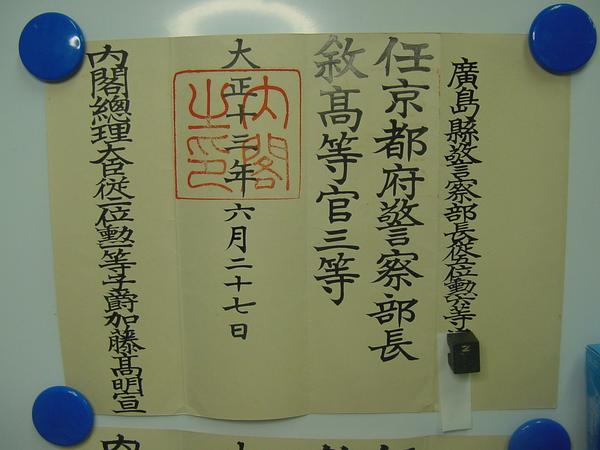 廣島縣警察部長從五位勲六等
任京都府警察部長
敘髙等官三等
大正十三年六月二十七日
内閣之印
内閣總理大臣從二位勲一等子爵加藤髙明宣